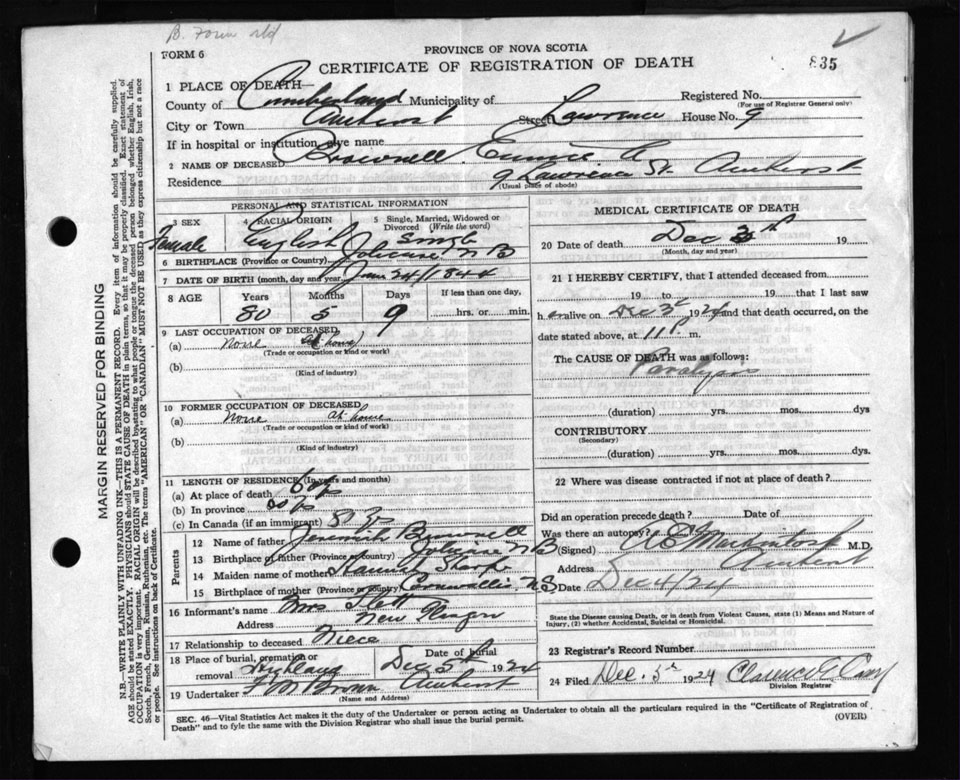 B. Form
FORM 6
PROVINCE OF NOVA SCOTIA
CERTIFICATE OF REGISTRATION OF DEATH
835
1 PLACE OF DEATH—
Registered No.
(For use of Registrar General only)
County of Cumberland Municipality of
City or Town Amherst Street Lawrence House No. 9
If in hospital or institution, give name
2 NAME OF DECEASED Brownell, Eunice A
Residence 9 Lawrence St. Amherst
(Usual place of abode)
PERSONAL AND STATISTICAL INFORMATION
3 SEX Female
4 RACIAL ORIGIN English
5 Single, Married, Widowed or Divorced (Write the word) Single
6 BIRTHPLACE (Province or Country) Jolicure N B
7 DATE OF BIRTH (month, day and year) June 24/1844
8 AGE Years Months Days If less than one day,
80 5 9 hrs. or min.
9 LAST OCCUPATION OF DECEASED
(a) None at home
(Trade or occupation or kind of work)
(b)
(Kind of industry)
10 FORMER OCCUPATION OF DECEASED
(a) None at home
(Trade or occupation or kind of work)
(b)
(Kind of industry)
11 LENGTH OF RESIDENCE (In years and months)
(a) At place of death
(b) In province
(c) In Canada (if an immigrant) 80
Parents
12 Name of father Jeremiah Brownell
13 Birthplace of father (Province or country) Jolicure N B
14 Maiden name of mother Hannah Sharp
15 Birthplace of mother (Province or country) Cornwallis, N.S
16 Informant's name Mrs
Address New Glasgow
17 Relationship to deceased Niece
18 Place of burial, cremation or removal Highland
Date of burial Dec 5th 1924
19 Undertaker Brown Amherst
(Name and Address)
MEDICAL CERTIFICATE OF DEATH
20 Date of death Dec 19
(Month, day and year)
21 I HEREBY CERTIFY, that I attended deceased from
19 to 19 that I last saw
her alive on Dec 3d 1924 and that death occurred, on
date stated above, at 11 P m.
The CAUSE OF DEATH was as follows:
Paralysis
(duration) yrs. mos. dys
CONTRIBUTORY
(Secondary)
(duration) yrs. mos. dys.
22 Where was disease contracted if not at place of death?
Did an operation precede death? Date of
Was there an autopsy?
(Signed) McIntosh M.D.
Address Amherst
Date Dec 4/24
State the Disease causing Death, or in death from Violent Causes, state (1) Means and Nature of
Injury, (2) whether Accidental, Suicidal or Homicidal.
23 Registrar's Record Number
24 Filed Dec. 5th 1924 Clarence E. Casey
Division Registrar
SEC. 46—Vital Statistics Act makes it the duty of the Undertaker or person acting as Undertaker to obtain all the particulars required in the "Certificate of Registration of
Death" and to fyle the same with the Division Registrar who shall issue the burial permit.
(OVER)
MARGIN RESERVED FOR BINDING
N.B.—WRITE PLAINLY WITH UNFADING INK—THIS IS A PERMANENT RECORD. Every item of information should be carefully supplied.
AGE should be stated EXACTLY. PHYSICIANS should STATE CAUSE OF DEATH in plain terms, so that it may be properly classified. Exact statement of
OCCUPATION is very important. RACIAL ORIGIN will be described by stating to what people or tongue the deceased person belonged whether English, Irish,
Scotch, French, German, Russian, Ruthenian, etc. The terms "AMERICAN" OR "CANADIAN" MUST NOT BE USED as they express citizenship but not a race
or people. See instructions on back of Certificate.